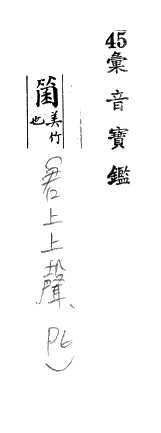 45彙音寶鑑
箘 美竹也
(君上上聲、P6)